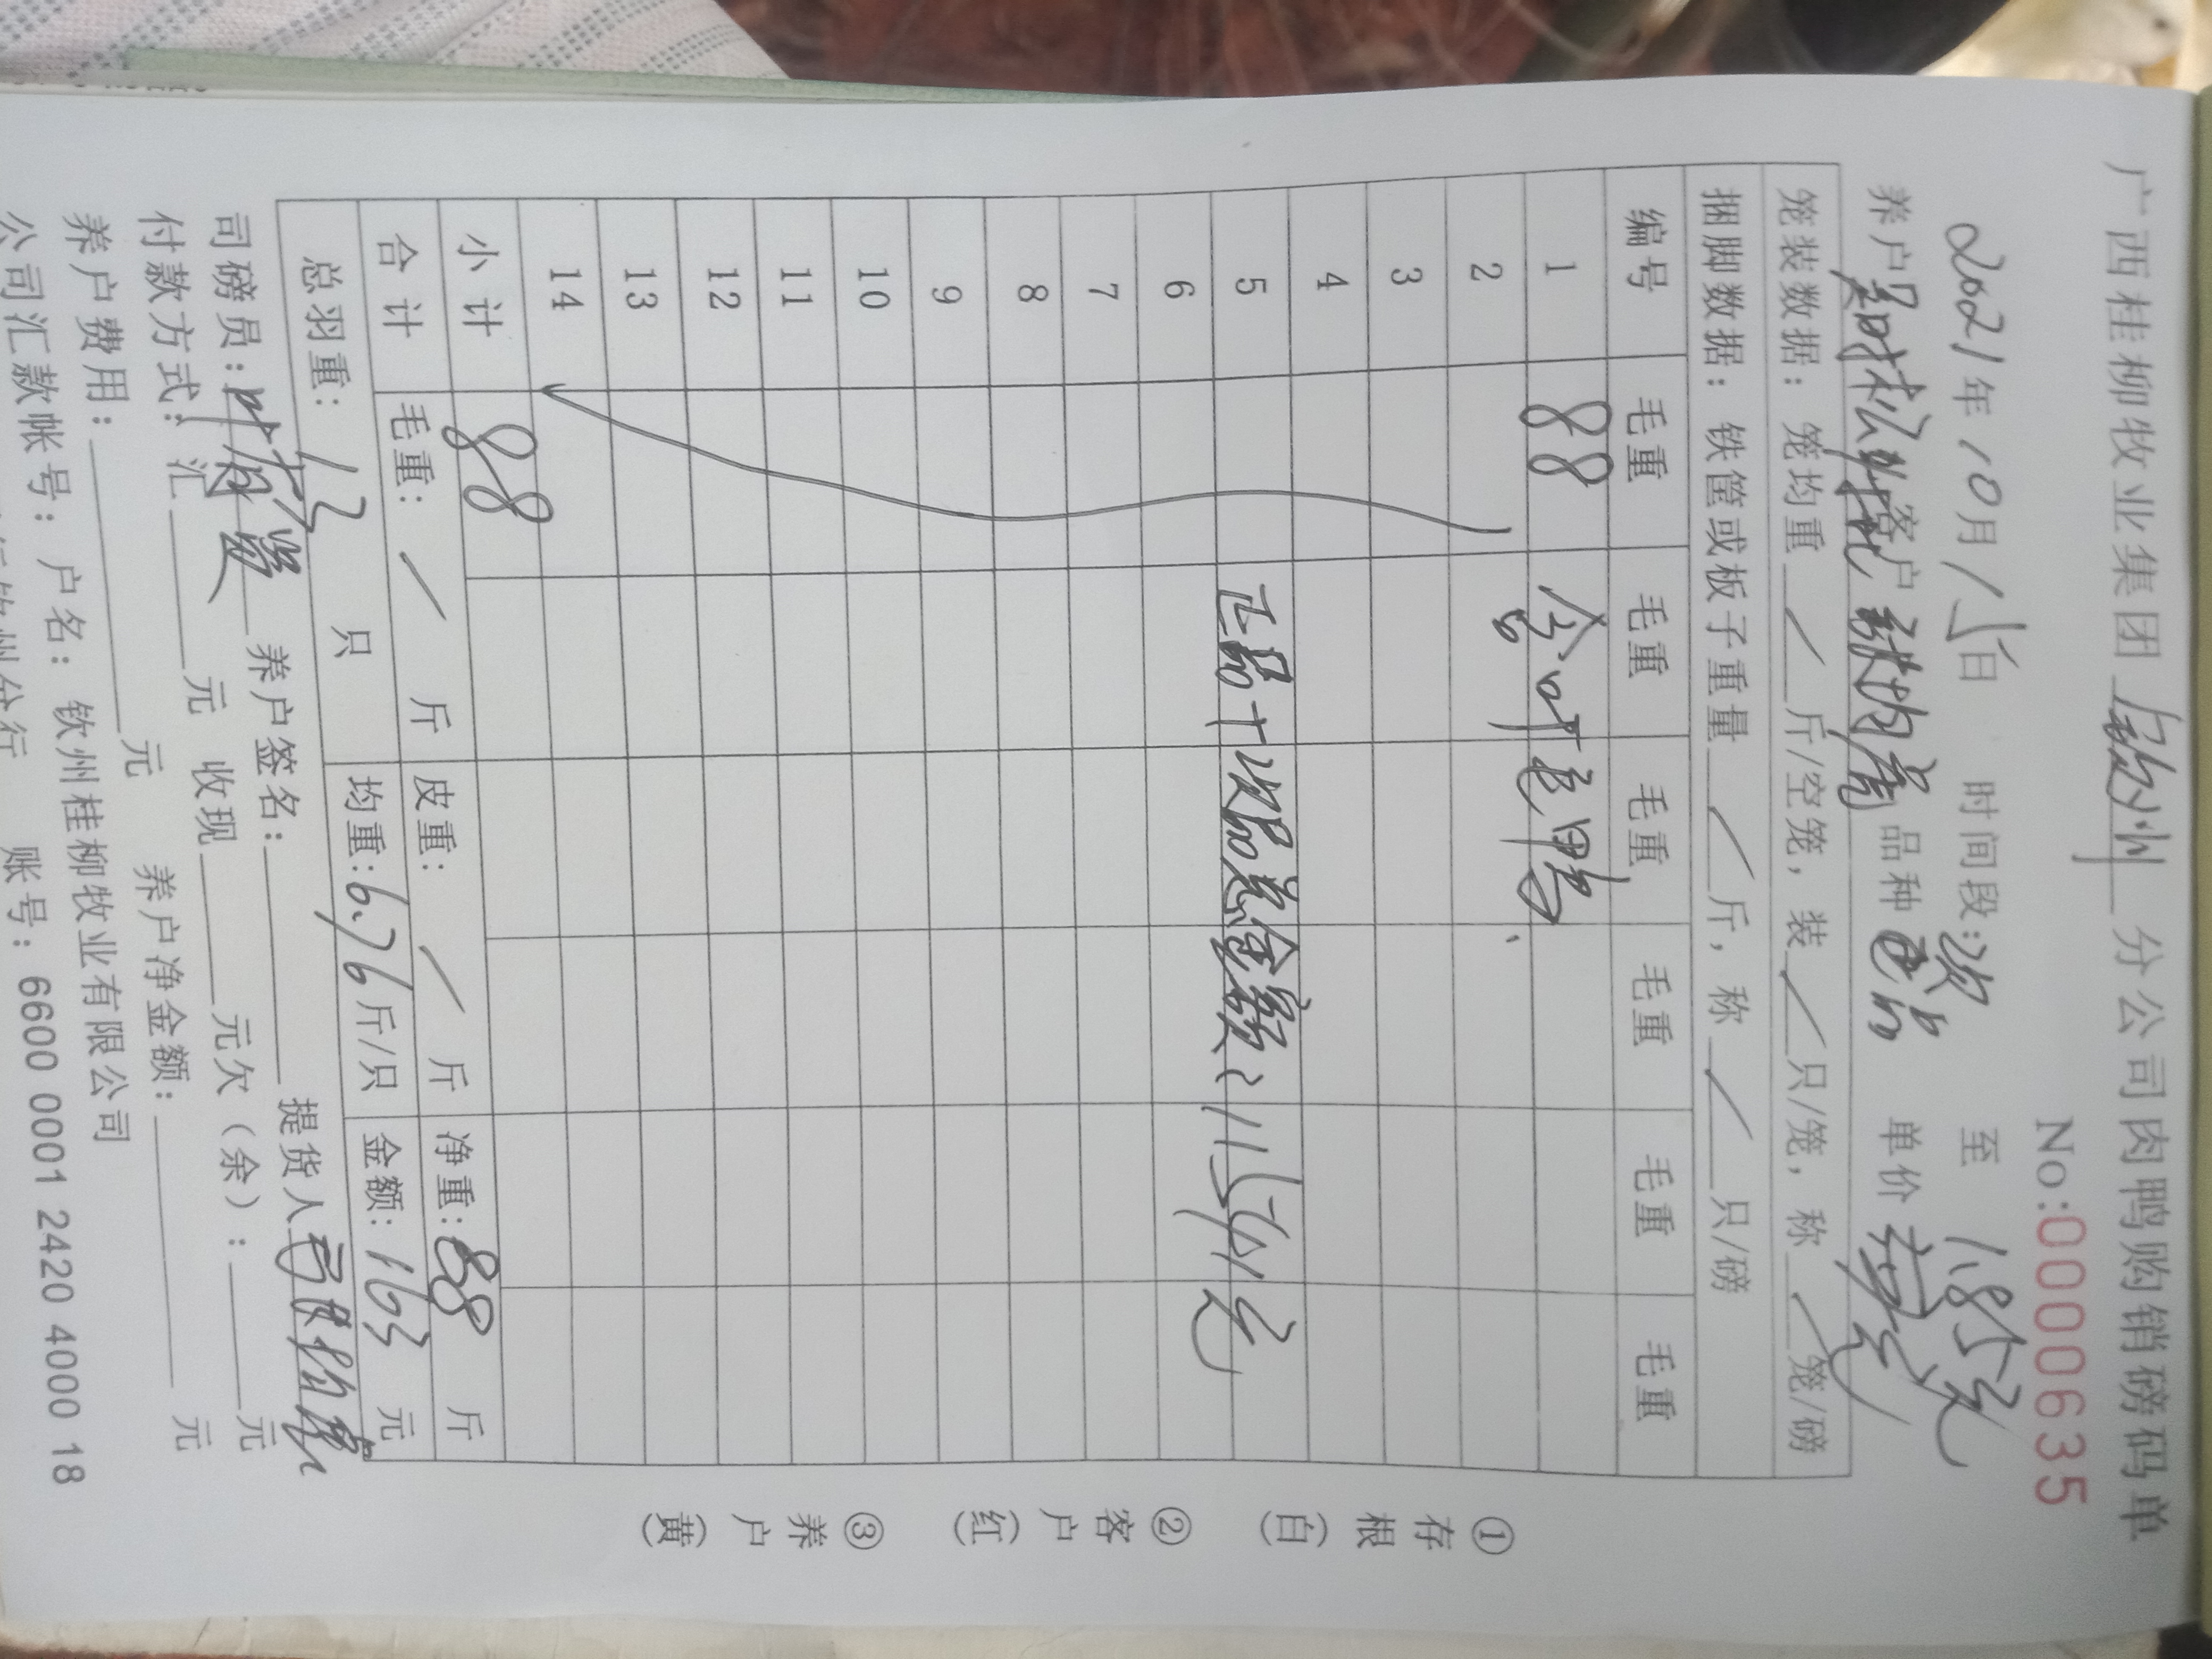 广西桂柳牧业集团 钦州 分公司肉鸭购销磅码单
No:0000635
2021年10月15日 时间段: 次 至 1.85元
养户 客户 品种 单价
笼装数据：笼均重 / 斤/空笼，装 / 只/笼，称 / 笼/磅
捆脚数据：铁筐或板子重量 / 斤，称 / 只/磅
编号 毛重 毛重 毛重 毛重 毛重 毛重
1 88 含 毛鸭
2
3
4
5 正品+次品总金额:
6
7
8
9
10
11
12
13
14
小计 88
合计 毛重: / 斤 皮重: / 斤 净重:88 斤
总羽重: 13 只 均重:6.76斤/只 金额:163 元
司磅员: 养户签名: 提货人
付款方式: 汇 元 收现 元欠（余）: 元
养户费用: 元 养户净金额: 元
公司汇款帐号: 户名: 钦州桂柳牧业有限公司
钦州分行 账号: 6600 0001 2420 4000 18
①存根（白） ②客户（红） ③养户（黄）